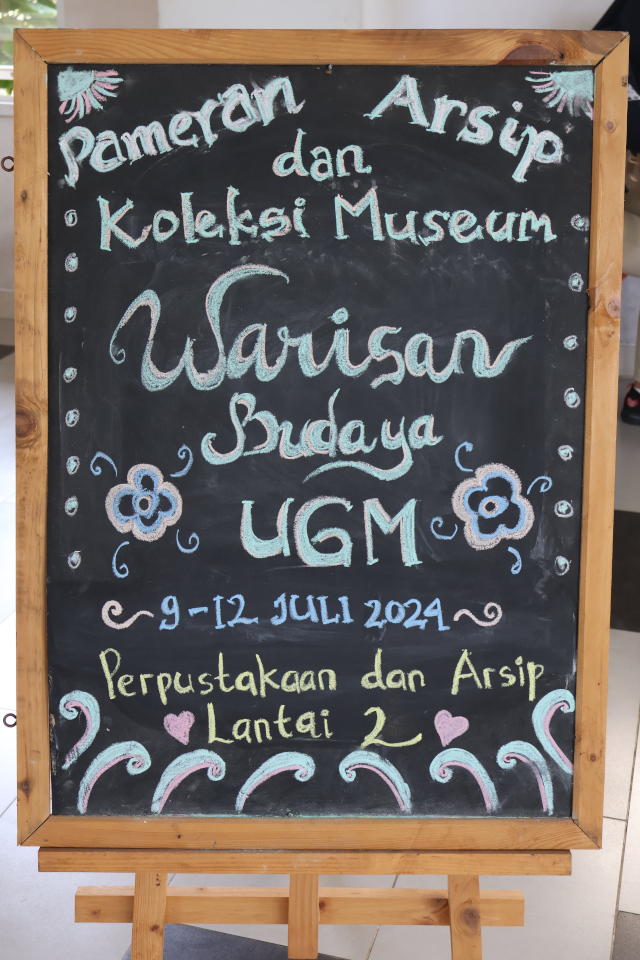 Pameran Arsip
dan
Koleksi Museum
Warisan
Budaya
UGM
9-12 JULI 2024
Perpustakaan dan Arsip
Lantai 2